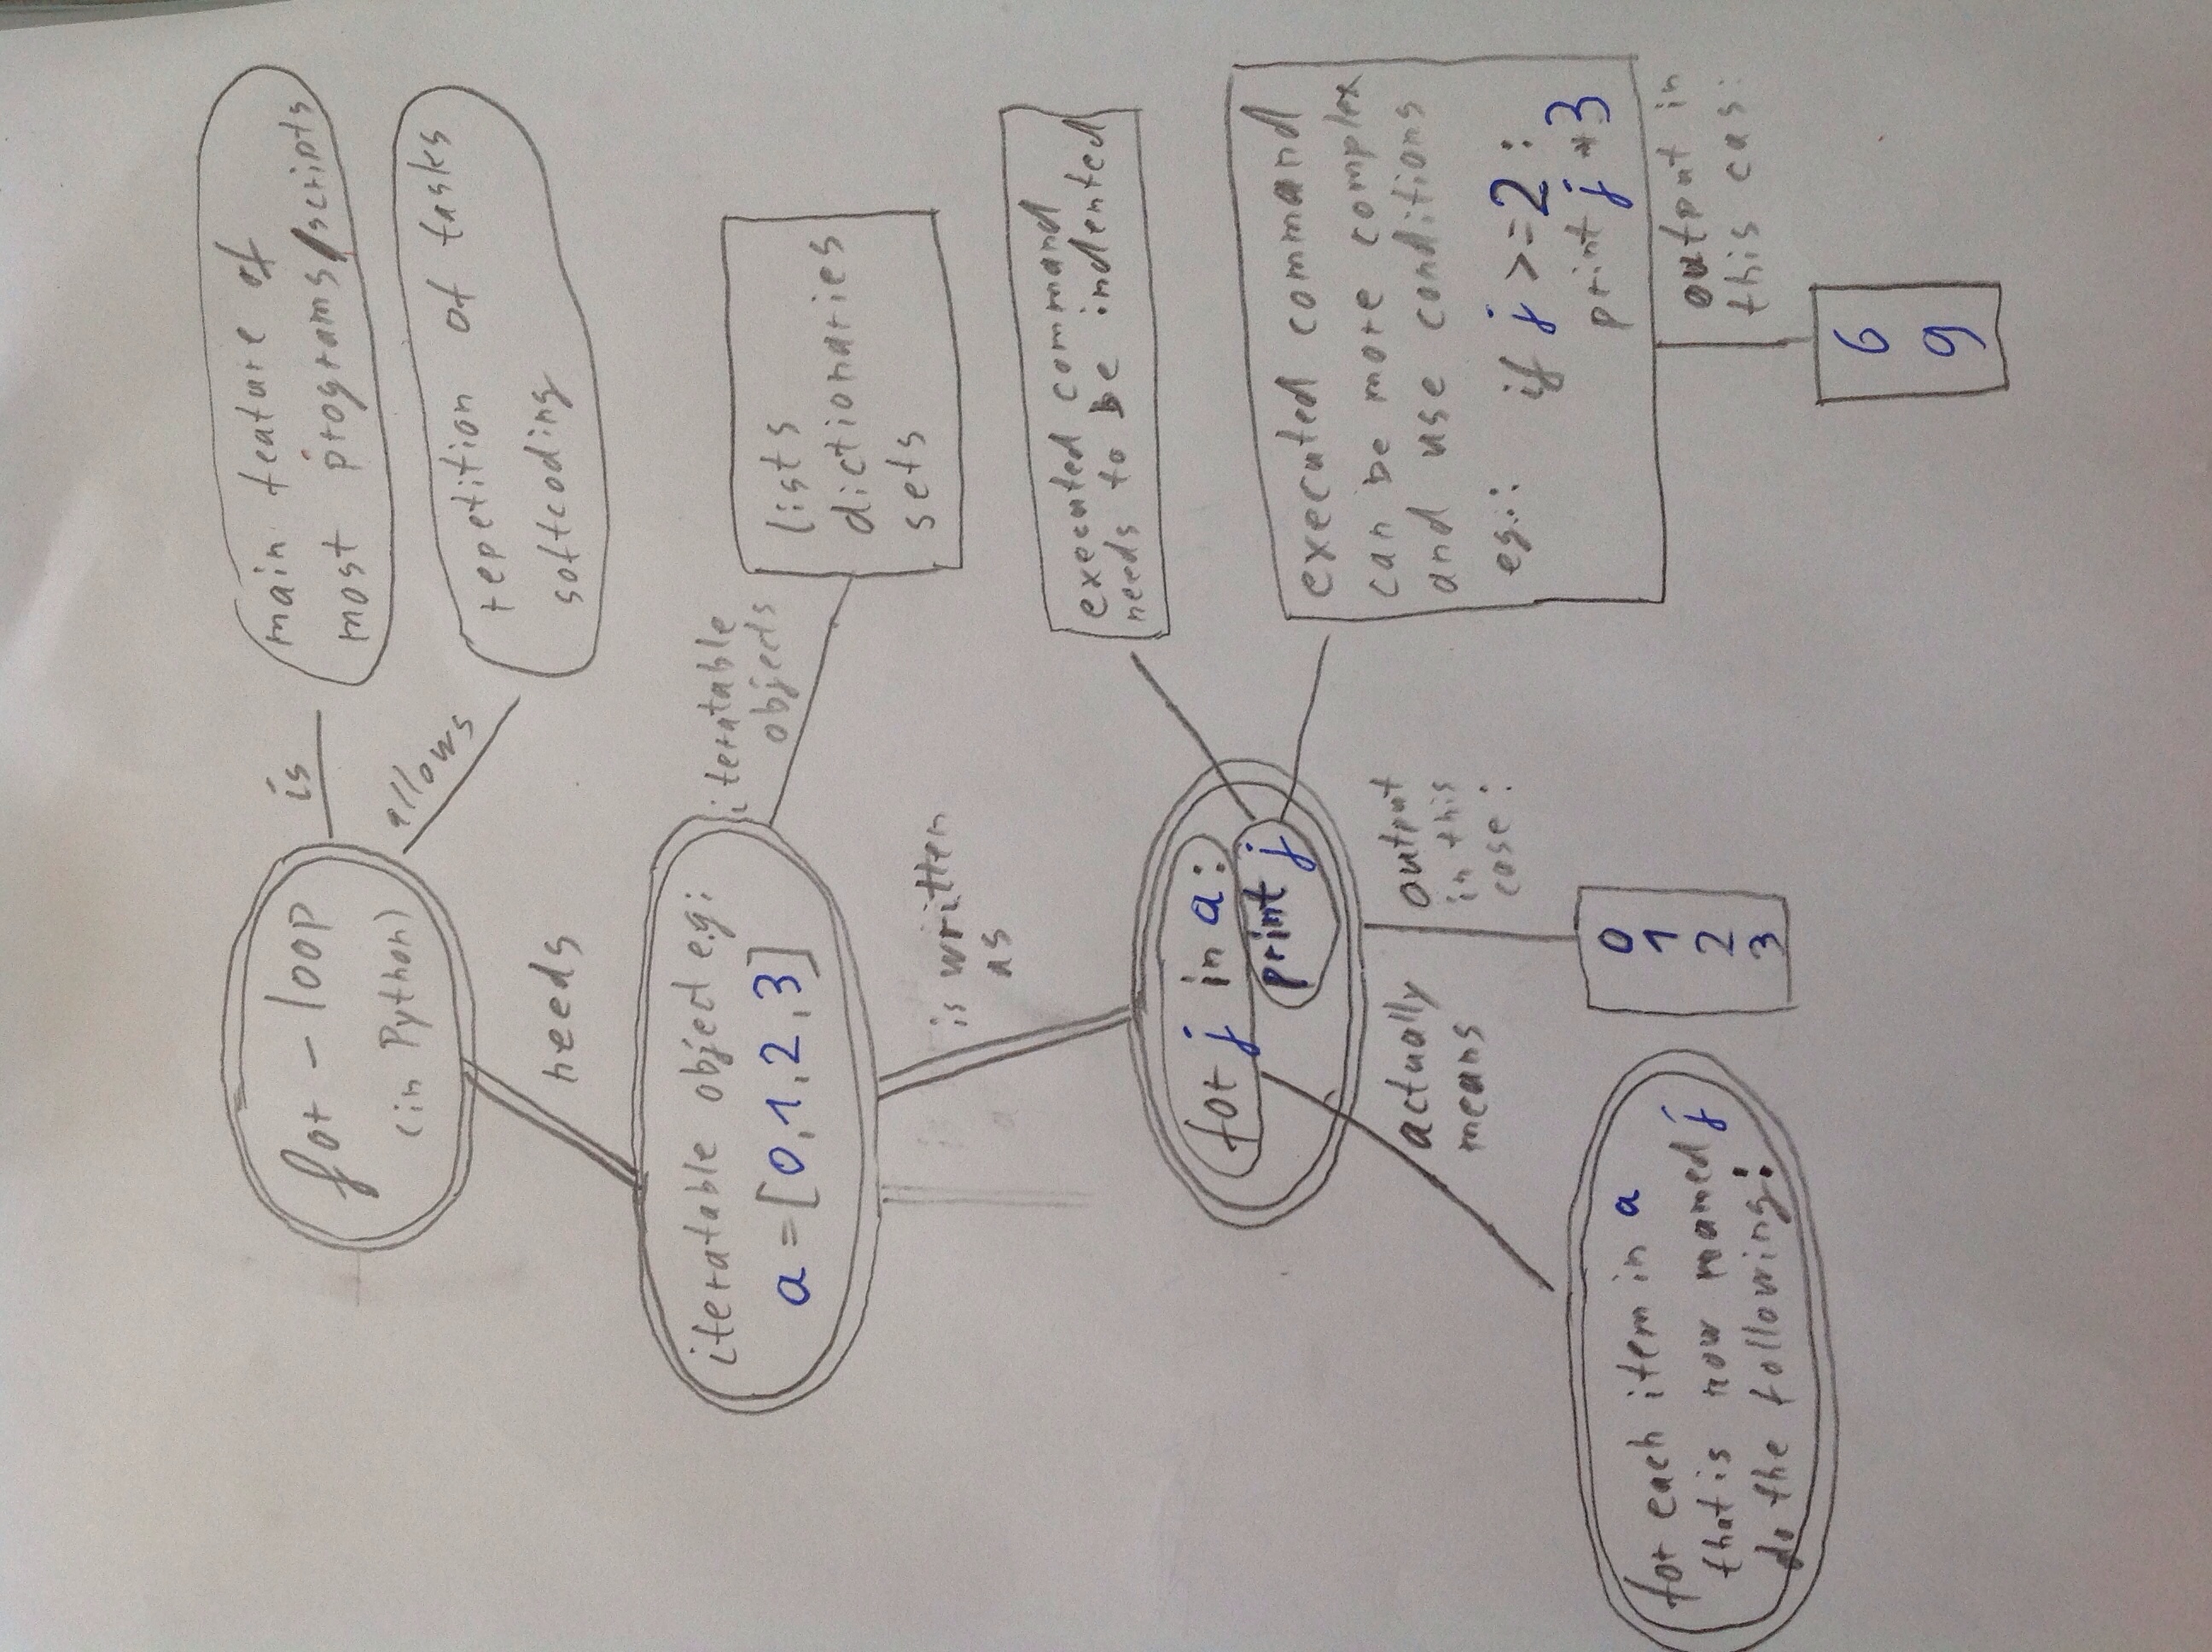 for - loop
(in Python)
is
main feature of
most programs/scripts
allows
repetition of tasks
softcoding
needs
iteratable object e.g:
a = [0,1,2,3]
iteratable
objects
lists
dictionaries
sets
is written
as
for j in a:
print j
executed command
needs to be indented
executed command
can be more complex
and use conditions
eg.: if j >= 2:
print j * 3
output in
this cas:
6
9
output
in this
case:
0
1
2
3
actually
means
for each item in a
that is now named j
do the following: